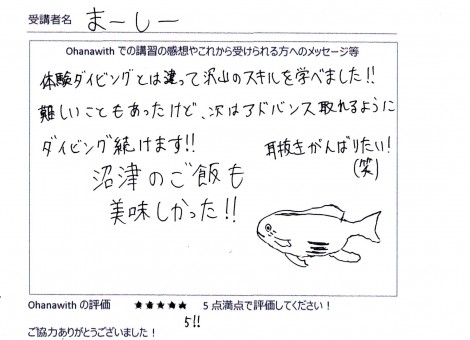 受講者名 まーしー
Ohanawith での講習の感想やこれから受けられる方へのメッセージ等
体験ダイビングとは違って沢山のスキルを学べました!!
難しいこともあったけど、次はアドバンス取れるように
ダイビング続けます!!
耳抜きがんばりたい!
(笑)
沼津のご飯も
美味しかった!!
Ohanawith の評価 ★★★★★ 5点満点で評価してください!
5!!
ご協力ありがとうございました!